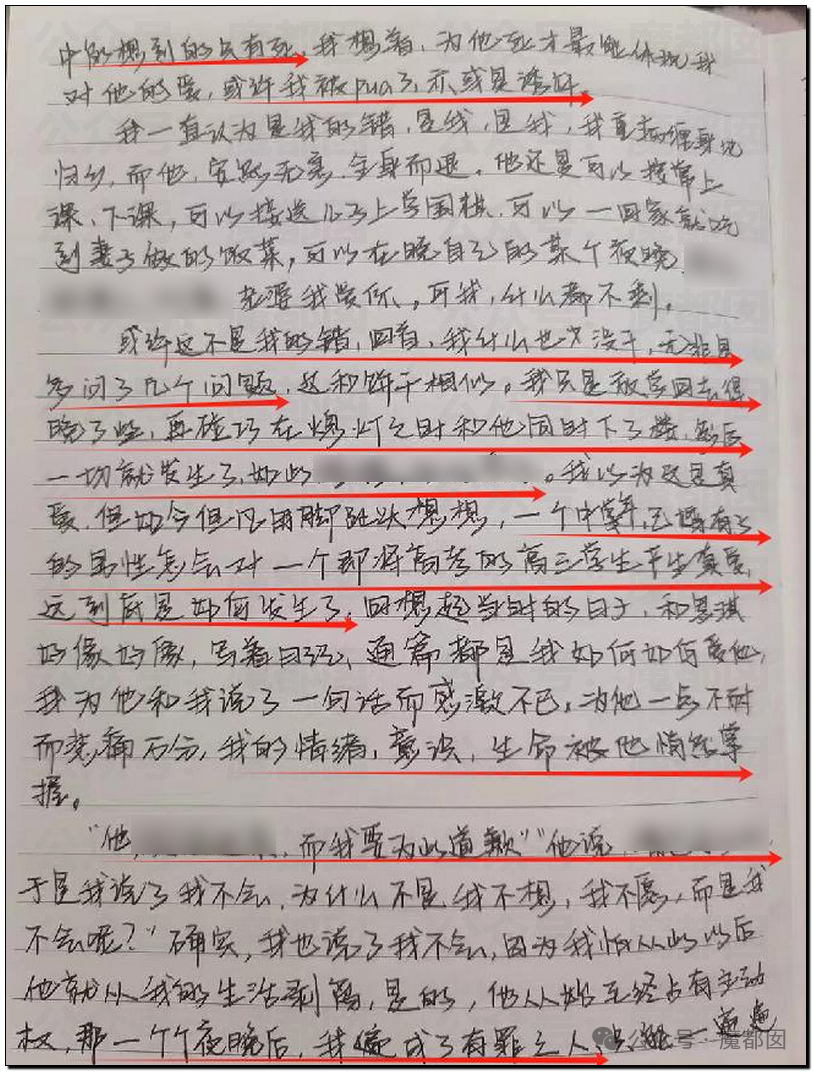 中的想到的只有死，我想着，为他死才最能体现我
对他的爱，或许我被pua了，亦或是诱奸。
我一直认为是我的错，是我，是我，我重病缠身地
归乡，而他，安然无恙，全身而退。他还是可以按常上
课、下课，可以接送儿子上学围棋，可以一回家就吃
到妻子做的饭菜，可以在晚自习的某个夜晚
我爱你、，可我，什么都不剩。
或许这不是我的错，回首，我什么也没干，无非是
多问了几个问题，这和饼干相似。我只是放学回去得
晚了些，再碰巧在熄灯之时和他同时下了楼，然后
一切就发生了，如此 。我以为这是真
爱，但如今但凡用脚趾头想想，一个中年，已婚有子
的男性怎么对一个即将高考的高三学生产生真爱，
这到底是如何发生了，回想起当时的日子，和思琪
好像好像，写着日记，通篇都是我如何如何爱他，
我为他和我说了一句话而感激不已，为他一点不耐
而悲痛万分，我的情绪，意识，生命被他悄然掌
握。
“他 ，而我要为此道歉”“他说
于是我说了我不会，为什么不是我不想，我不愿，而是我
不会呢？”确实，我也说了我不会，因为我怕从此以后
他就从我的生活剥离，是的，他从始至终占有主动
权，那一个个夜晚后，我便成了有罪之人， 一遍遍
公众号·魔都囡